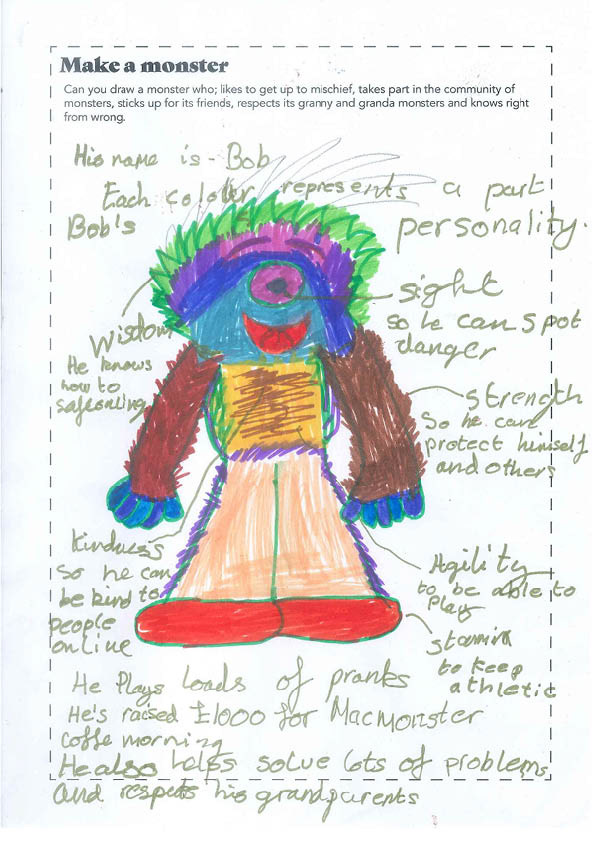 Make a monster
Can you draw a monster who; likes to get up to mischief, takes part in the community of
monsters, sticks up for its friends, respects its granny and granda monsters and knows right
from wrong.
His name is - Bob
Each colour represents a part
Bob's personality.
Wisdom
He knows
how to
sight
so he can spot
danger
strength
So he can
protect himself
and others
kindness
so he can
be kind to
people
online
Agility
to be able to
Play
stamin
to keep
athletic
He Plays loads of pranks
He's raised £1000 for Macmonster
coffe morning
He also helps solve lots of problems
and respets his grandparents